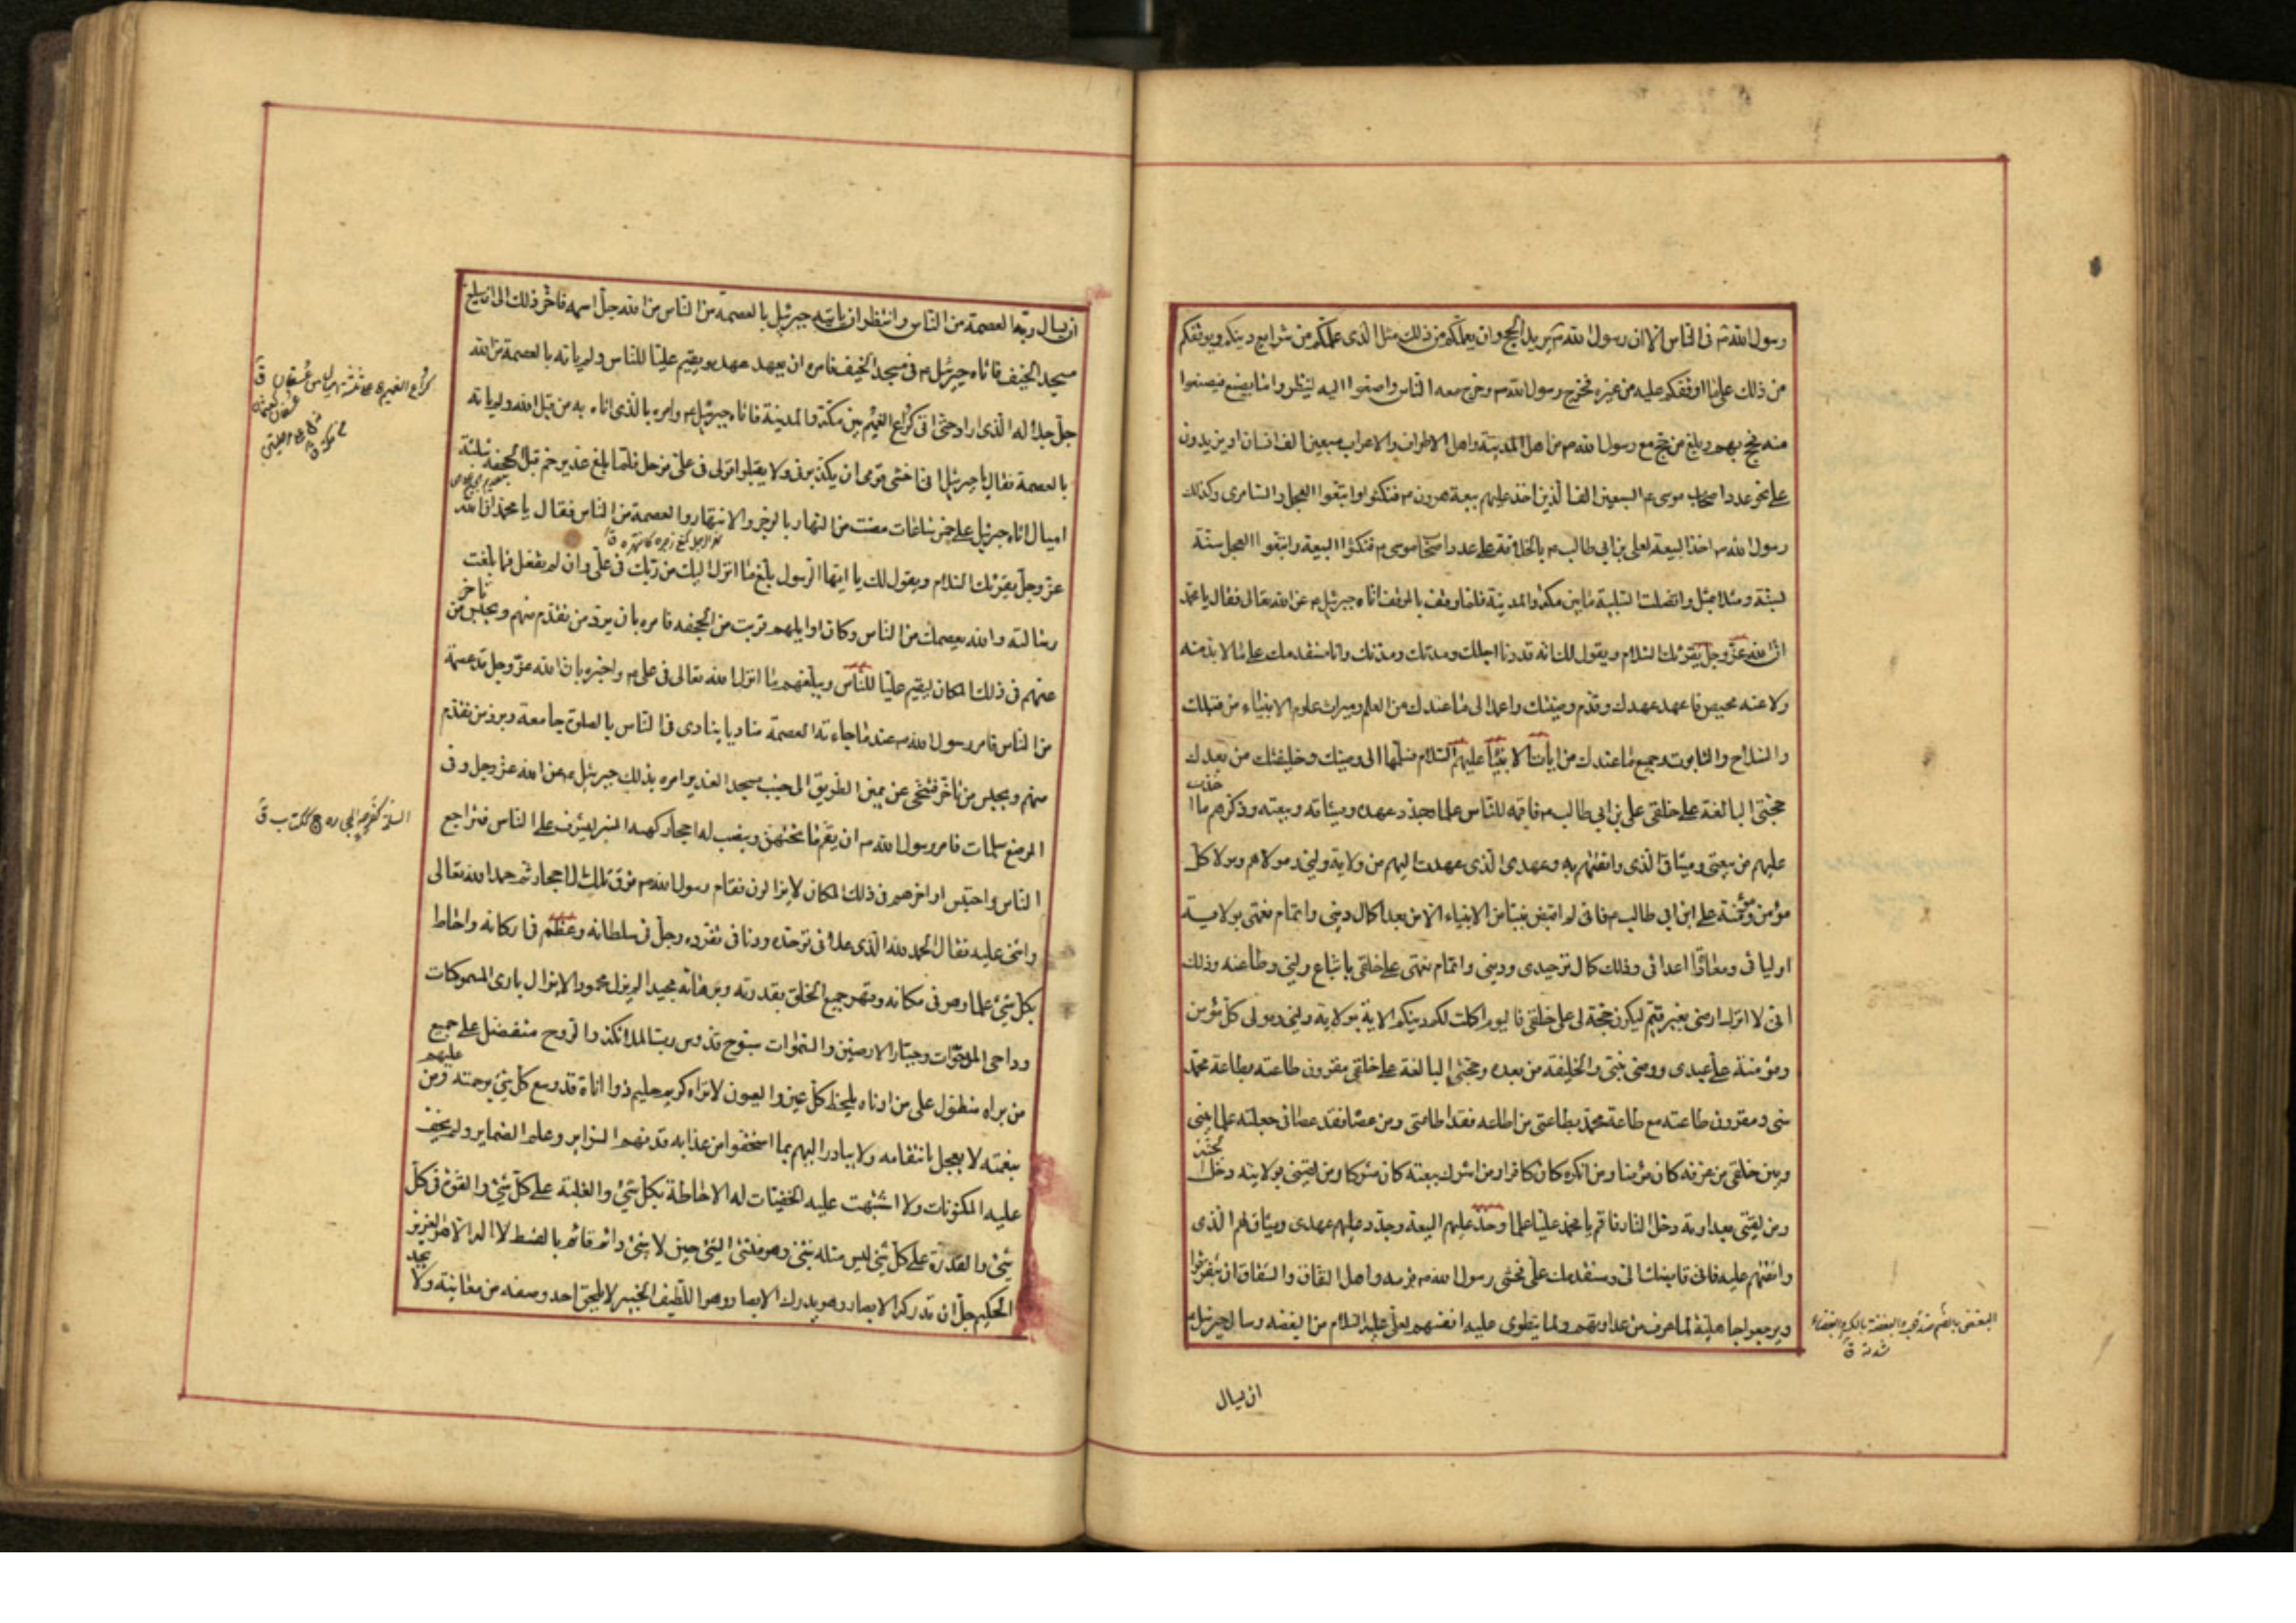 رسول الله ص في الناس الا ان رسول الله ص يريد الحج وان يعلمكم من ذلك مثل الذى علمكم من شرايع دينكم ويوقفكم
من ذلك على ما اوقفكم عليه من غيره فخرج رسول الله ص وخرج معه الناس واصغوا اليه لينظروا ما يصنع فيصنعوا
منه فحج بهم وبلغ من حج مع رسول الله ص من اهل المدينة واهل الاطراف والاعراب سبعين الف انسان او يزيدون
على نحو عدد اصحاب موسى ع السبعين الفا الذين اخذ عليهم بيعة هرون ع فنكثوا واتبعوا العجل والسامرى وكذلك
رسول الله ص اخذ البيعة لعلى بن ابي طالب ع بالخلافة على عدد اصحاب موسى ع فنكثوا البيعة واتبعوا العجل سنة
لسنة ومثلا بمثل واتصلت التلبية ما بين مكة والمدينة فلما وقف بالموقف اتاه جبرئيل ع عن الله تعالى فقال يا محمد
ان الله عز وجل يقرئك السلام ويقول لك انه قد دنا اجلك ومدتك وانا مستقدمك على ما لا بد منه
ولا عنه محيص فاعهد عهدك وقدم وصيتك واعمد الى ما عندك من العلم وميراث علوم الانبياء من قبلك
والسلاح والتابوت وجميع ما عندك من ايات الانبياء عليهم السلام فسلمها الى وصيك وخليفتك من بعدك
حجتى البالغة على خلقى على بن ابي طالب ع فاقمه للناس علما وجدد عهده وميثاقه وبيعته وذكرهم ما اخذت
عليهم من بيعتى وميثاقى الذى واثقتهم به وعهدى الذى عهدت اليهم من ولاية وليى ومولاهم ومولا كل
مؤمن ومؤمنة على ابن ابي طالب ع فانى لم اقبض نبيا من الانبياء الا من بعد اكمال دينى واتمام نعمتى بولاية
اوليائى ومعاداة اعدائى وذلك كمال توحيدى ودينى واتمام نعمتى على خلقى باتباع وليى وطاعته وذلك
انى لا اترك ارضى بغير قيم ليكون حجة لى على خلقى فاليوم اكملت لكم دينكم الاية بولاية وليى ومولى كل مؤمن
ومؤمنة على عبدى ووصى نبيى والخليفة من بعده وحجتى البالغة على خلقى مقرون طاعته بطاعة محمد
نبى ومقرون طاعته مع طاعة محمد بطاعتى من اطاعه فقد اطاعنى ومن عصاه فقد عصانى جعلته علما بينى
وبين خلقى من عرفه كان مؤمنا ومن انكره كان كافرا ومن اشرك ببيعته كان مشركا ومن لقينى بولايته دخل الجنة
ومن لقينى بعداوته دخل النار فاقم يا محمد عليا علما وخذ عليهم البيعة وجدد عليهم عهدى وميثاقى لهم الذى
واثقتهم عليه فانى قابضك الى ومستقدمك على فخشى رسول الله ص قومه واهل النفاق والشقاق ان يتفرقوا
ويرجعوا جاهلية لما عرف من عداوتهم ولما ينطوى عليه انفسهم لعلى عليه السلام من البغضة وسال جبرئيل ع
البغض بالضم ضد الحب والبغضة بالكسر والبغضاء
شدته ق
ان يسال
ان يسال ربه العصمة من الناس وانتظر ان ياتيه جبرئيل بالعصمة من الناس من الله جل اسمه فاخر ذلك الى ان بلغ
مسجد الخيف فاتاه جبرئيل ع في مسجد الخيف فامره ان يعهد عهده ويقيم عليا للناس ولم ياته بالعصمة من الله
جل جلاله الذى اراد حتى اتى كراع الغميم بين مكة والمدينة فاتاه جبرئيل ع وامره بالذى اتاه به من قبل الله ولم ياته
بالعصمة فقال يا جبرئيل انى اخشى قومى ان يكذبونى ولا يقبلوا قولى فى على فرحل فلما بلغ غدير خم قبل الجحفة بثلثة
اميال اتاه جبرئيل على خمس ساعات مضت من النهار بالزجر والانتهار والعصمة من الناس فقال يا محمد ان الله
عز وجل يقرئك السلام ويقول لك يا ايها الرسول بلغ ما انزل اليك من ربك فى على وان لم تفعل فما بلغت
رسالته والله يعصمك من الناس وكان اوايلهم قريب من الجحفه فامره بان يرد من تقدم منهم ويحبس من تاخر
عنهم في ذلك المكان ليقيم عليا للناس ويبلغهم ما انزل الله تعالى فى على ع واخبره بان الله عز وجل قد عصمه
من الناس فامر رسول الله ص عند ما جاءته العصمة مناديا ينادى فى الناس بالصلوة جامعة ويرد من تقدم
منهم ويحبس من تاخر فتنحى عن يمين الطريق الى جنب مسجد الغدير امره بذلك جبرئيل ع عن الله عز وجل وفى
الموضع سلمات فامر رسول الله ص ان يقم ما تحتهن وينصب له احجار كهيئة المنبر ليشرف على الناس فتراجع
الناس واحتبس اواخرهم فى ذلك المكان لا يزالون فقام رسول الله ص فوق تلك الاحجار ثم حمد الله تعالى
واثنى عليه فقال الحمد لله الذى علا فى توحده ودنا فى تفرده وجل فى سلطانه وعظم فى اركانه واحاط
بكل شئ علما وهو فى مكانه وقهر جميع الخلق بقدرته وبرهانه مجيدا لم يزل محمودا لا يزال بارى المسموكات
وداحى المدحوات وجبار الارضين والسموات سبوح قدوس رب الملائكة والروح متفضل على جميع
من براه متطول على من ادناه يلحظ كل عين والعيون لا تراه كريم حليم ذو اناة قد وسع كل شئ برحمته ومن عليهم
بنعمته لا يعجل بانتقامه ولا يبادر اليهم بما استحقوا من عذابه قد فهم السراير وعلم الضماير ولم يخف
عليه المكنونات ولا اشتبهت عليه الخفيات له الاحاطة بكل شئ والغلبة على كل شئ والقوة فى كل
شئ والقدرة على كل شئ ليس مثله شئ وهو منشئ الشئ حين لا شئ دائم قائم بالقسط لا اله الا هو العزيز
الحكيم جل ان تدركه الابصار وهو يدرك الابصار وهو اللطيف الخبير لا يلحق احد وصفه من معاينة ولا يجد